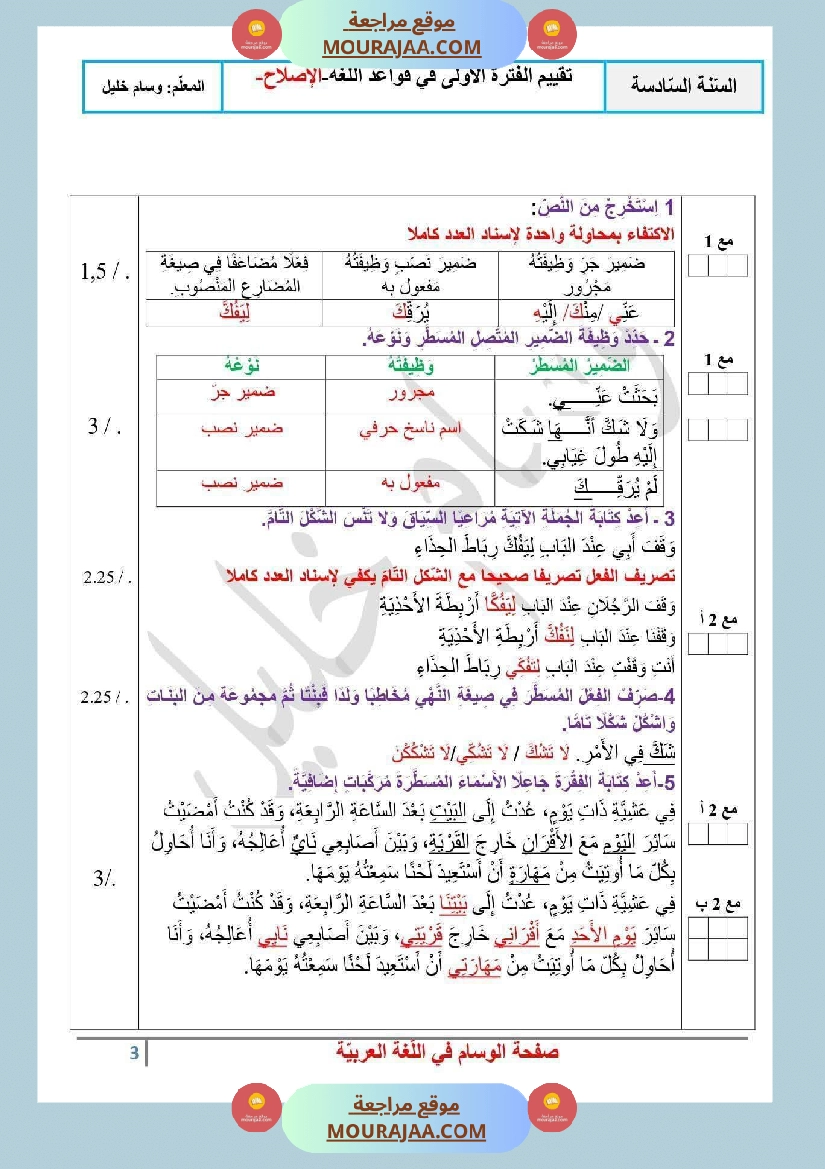 موقع مراجعة
MOURAJAA.COM
السّنة السّادسة
تقييم الفترة الأولى في قواعد اللغة-الإصلاح-
المعلّم: وسام خليل
1 اِسْتَخْرِجْ مِنَ النَّصّ:
الاكتفاء بمحاولة واحدة لإسناد العدد كاملا
مع 1
1,5 / .
ضَمِيرَ جَرٍّ وَظِيفَتُهُ مَجْرُور
ضَمِيرَ نَصْبٍ وَظِيفَتُهُ مَفعول به
فِعْلًا مُضَاعَفًا فِي صِيغَةِ المُضَارِعِ المَنْصُوبِ.
عَنِّي /مِنْكَ/ إِلَيْهِ
يُرَقِكَ
لِيَفُكَّ
2 ـ حَدِّدْ وَظِيفَةَ الضَّمِيرِ المُتَّصِلِ المُسَطَّرِ وَنَوْعَهُ.
مع 1
3 / .
الضَّمِيرُ المُسَطَّرُ
وَظِيفَتُهُ
نَوْعُهُ
بَحَثَتْ عَنِّـــــي.
مجرور
ضمير جرّ
وَلَا شَكَّ أَنَّـــــهَا شَكَتْ إِلَيْهِ طُولَ غِيَابِي.
اسم ناسخ حرفي
ضمير نصب
لَمْ يُرَقِّـــــكَ
مفعول به
ضمير نصب
3 ـ أَعِدْ كِتَابَةَ الجُمْلَةِ الآتِيَةِ مُرَاعِيًا السِّيَاقَ وَلَا تَنْسَ الشَّكْلَ التَّامَّ.
وَقَفَ أَبِي عِنْدَ البَابِ لِيَفُكَّ رِبَاطَ الحِذَاءِ
تصريف الفعل تصريفا صحيحا مع الشّكل التّامّ يكفي لإسناد العدد كاملا
2.25 / .
مع 2 أ
وَقَفَ الرَّجُلَانِ عِنْدَ البَابِ لِيَفُكَّا أَرْبِطَةَ الأَحْذِيَةِ
وَقَفْنَا عِنْدَ البَابِ لِنَفُكَّ أَرْبِطَةَ الأَحْذِيَةِ
أَنْتِ وَقَفْتِ عِنْدَ البَابِ لِتَفُكِّي رِبَاطَ الحِذَاءِ
4-صَرِّفْ الفِعْلَ المُسَطَّرَ فِي صِيغَةِ النَّهْيِ مُخَاطِبًا وَلَدًا فَبِنْتًا ثُمَّ مَجْمُوعَةً مِنَ البَنَاتِ
وَاشْكُلْ شَكْلًا تَامًّا.
2.25 / .
شَكَّ فِي الأَمْرِ. لَا تَشُكَّ / لَا تَشُكِّي/لَا تَشْكُكْنَ
5-أَعِدْ كِتَابَةَ الفِقْرَةِ جَاعِلًا الأَسْمَاءَ المُسَطَّرَةَ مُرَكَّبَاتٍ إِضَافِيَّةً.
فِي عَشِيَّةِ ذَاتِ يَوْمٍ، عُدْتُ إِلَى البَيْتِ بَعْدَ السَّاعَةِ الرَّابِعَةِ، وَقَدْ كُنْتُ أَمْضَيْتُ
مع 2 أ
سَائِرَ اليَوْمِ مَعَ الأَقْرَانِ خَارِجَ القَرْيَةِ، وَبَيْنَ أَصَابِعِي نَايٌ أُعَالِجُهُ، وَأَنَا أُحَاوِلُ
بِكُلِّ مَا أُوتِيتُ مِنْ مَهَارَةٍ أَنْ أَسْتَعِيدَ لَحْنًا سَمِعْتُهُ يَوْمَهَا.
3/.
مع 2 ب
فِي عَشِيَّةِ ذَاتِ يَوْمٍ، عُدْتُ إِلَى بَيْتِنَا بَعْدَ السَّاعَةِ الرَّابِعَةِ، وَقَدْ كُنْتُ أَمْضَيْتُ
سَائِرَ يَوْمِ الأَحَدِ مَعَ أَقْرَانِي خَارِجَ قَرْيَتِي، وَبَيْنَ أَصَابِعِي نَايِي أُعَالِجُهُ، وَأَنَا
أُحَاوِلُ بِكُلِّ مَا أُوتِيتُ مِنْ مَهَارَتِي أَنْ أَسْتَعِيدَ لَحْنًا سَمِعْتُهُ يَوْمَهَا.
صفحة الوسام في اللّغة العربيّة
3
موقع مراجعة
MOURAJAA.COM